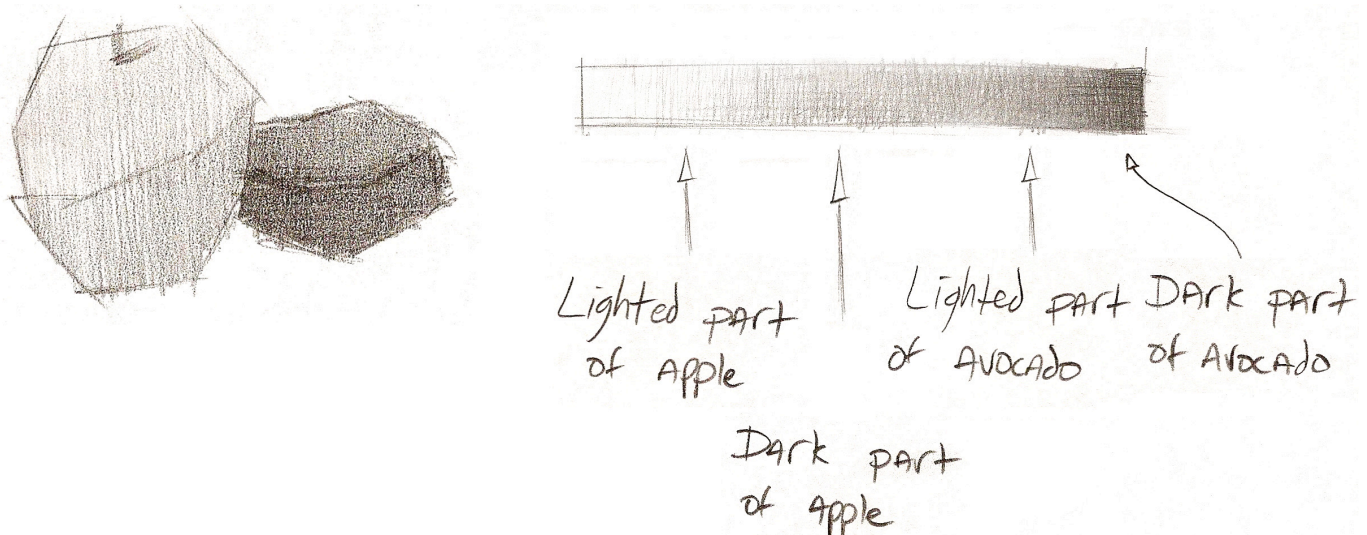 Lighted part
of Apple
Dark part
of Apple
Lighted part
of Avocado
Dark part
of Avocado